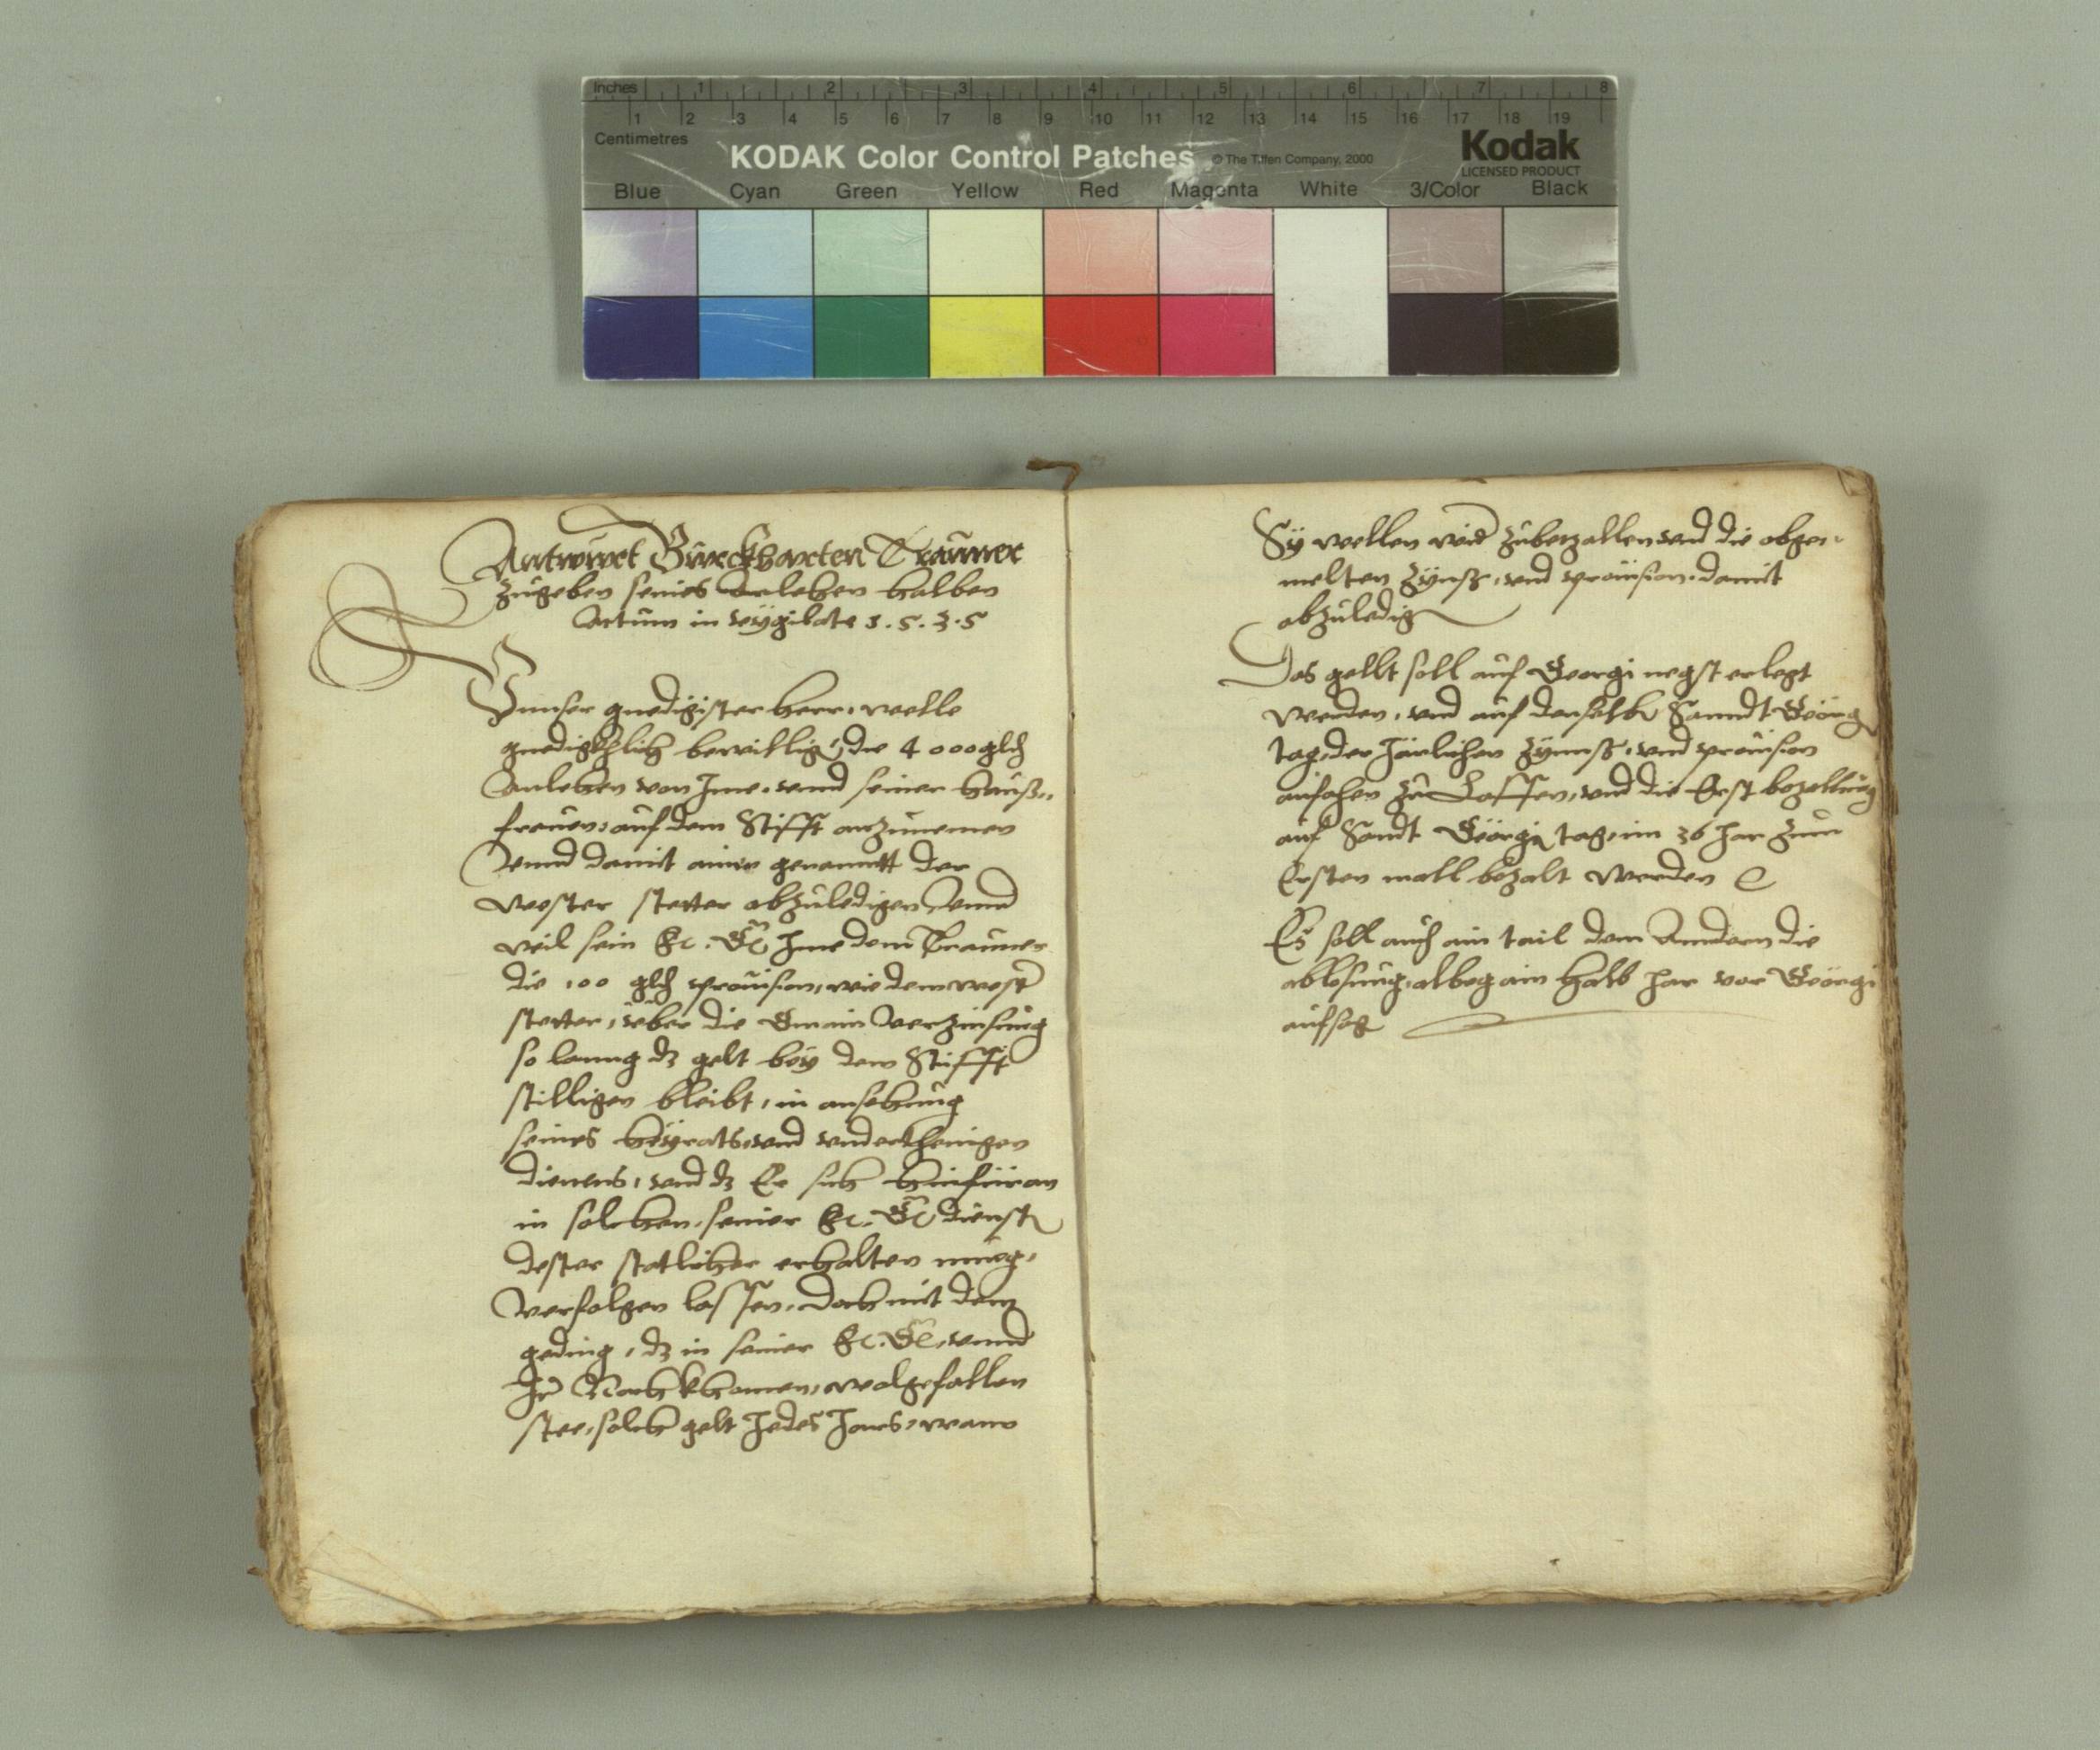 Inches 1 2 3 4 5 6 7 8
1 2 3 4 5 6 7 8 9 10 11 12 13 14 15 16 17 18 19
Centimetres
KODAK Color Control Patches © The Tiffen Company, 2000 Kodak
LICENSED PRODUCT
Blue Cyan Green Yellow Red Magenta White 3/Color Black
Antwurt Burckharten Trauner
zugeben seines Anlehen halben
Actum in vygilate 1.5.3.5
Unnser gnedigister herr, welle
gnedigkhlich bewillign, die 4000 gld
Anlehen von Jme, vnnd seiner hauß„
frauen, auf dem Stifft anzunemen
Vnnd damit ainen genanntt der
wester stetter abzuledigen Vnnd
weil sein Fr. Gn Jme dem Trauner
die 100 gld prouision, wie dem west
stetter, vber die Gmain Verzinsung
so lanng dz gelt bey dem Stifft
stilligen bleibt, in ansehung
seines heyrats, vnd vnderthenigen
dienens, vnd dz Er sich hinfüran
in solchen, seiner Fr. Gn dienst
dester statlicher erhalten müg,
Verfolgen lassen, doch mit dem
geding, dz in seiner Fr. Gn, vnnd
Jr Nachkhomen, wolgefallen
stee, solch gelt Jedes Jares, wann
Sy wellen wid zubezallen vnd die obgen„
melten Zynnß, vnd prouision, damit
abzuledig
Das gellt soll auf Georgi negst erlegt
werden, vnd auf denselbn Sanndt Georg
tag, der Järlichen Zynnß, vnd prouision
anfahen zu Lassen, vnd die Erst bezallung
auf Sandt Georgi tag, im 36 Jar zum
Ersten mall bezalt werden
Es soll auch ain tail dem Anndern die
ablosung, albeg ain halb Jar vor Georgi
aufsag